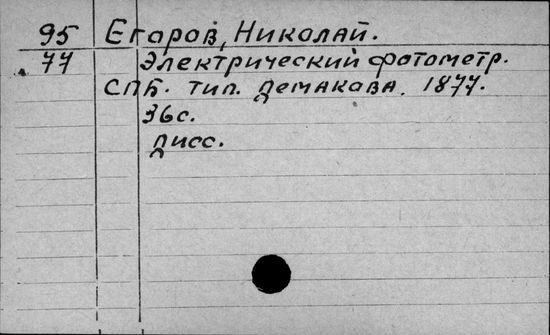 95 Егоров, Николай.
77 Электрический фотометр.
СПБ. тип. Демакова. 1877.
36с.
Дисс.